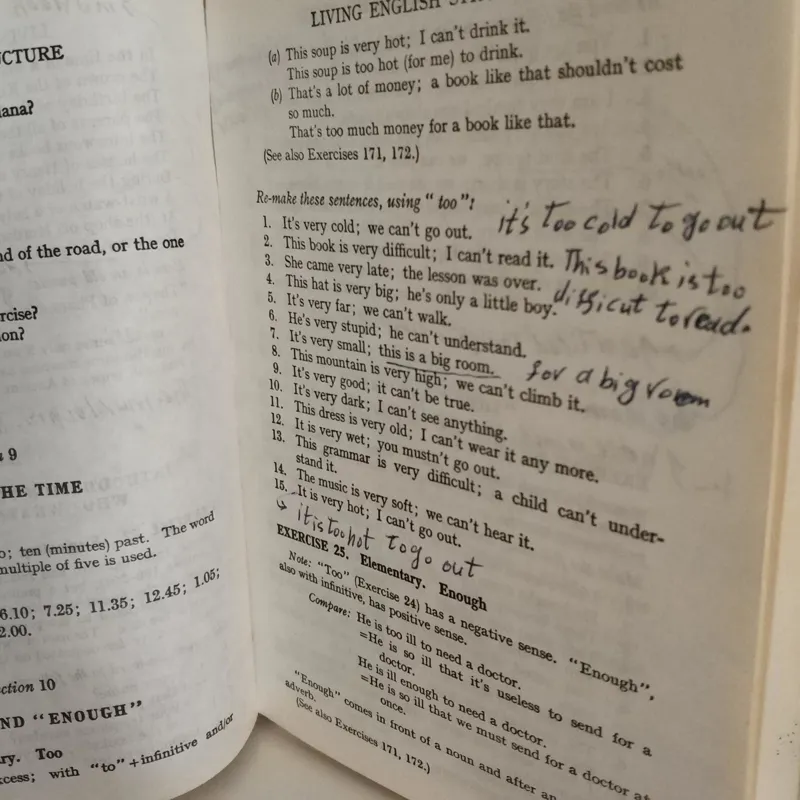 CTURE
ana?
nd of the road, or the one
rcise?
ion?
9
HE TIME
o; ten (minutes) past. The word
multiple of five is used.
6.10; 7.25; 11.35; 12.45; 1.05;
2.00.
ction 10
ND "ENOUGH"
ry. Too
xcess; with "to"+infinitive and/or
LIVING ENGLISH
(a) This soup is very hot; I can't drink it.
This soup is too hot (for me) to drink.
(b) That's a lot of money; a book like that shouldn't cost
so much.
That's too much money for a book like that.
(See also Exercises 171, 172.)
Re-make these sentences, using "too":
1. It's very cold; we can't go out. it's Too cold To go out
2. This book is very difficult; I can't read it. This book is too
difficut to read.
3. She came very late; the lesson was over.
4. This hat is very big; he's only a little boy.
5. It's very far; we can't walk.
6. He's very stupid; he can't understand.
7. It's very small; this is a big room. for a big room
8. This mountain is very high; we can't climb it.
9. It's very good; it can't be true.
10. It's very dark; I can't see anything.
11. This dress is very old; I can't wear it any more.
12. It is very wet; you mustn't go out.
13. This grammar is very difficult; a child can't under-
stand it.
14. The music is very soft; we can't hear it.
15. It is very hot; I can't go out.
it is too hot to go out
EXERCISE 25. Elementary. Enough
Note: "Too" (Exercise 24) has a negative sense. "Enough",
also with infinitive, has positive sense.
Compare: He is too ill to need a doctor.
=He is so ill that it's useless to send for a
doctor.
He is ill enough to need a doctor.
=He is so ill that we must send for a doctor at
once.
"Enough" comes in front of a noun and after an
adverb.
(See also Exercises 171, 172.)